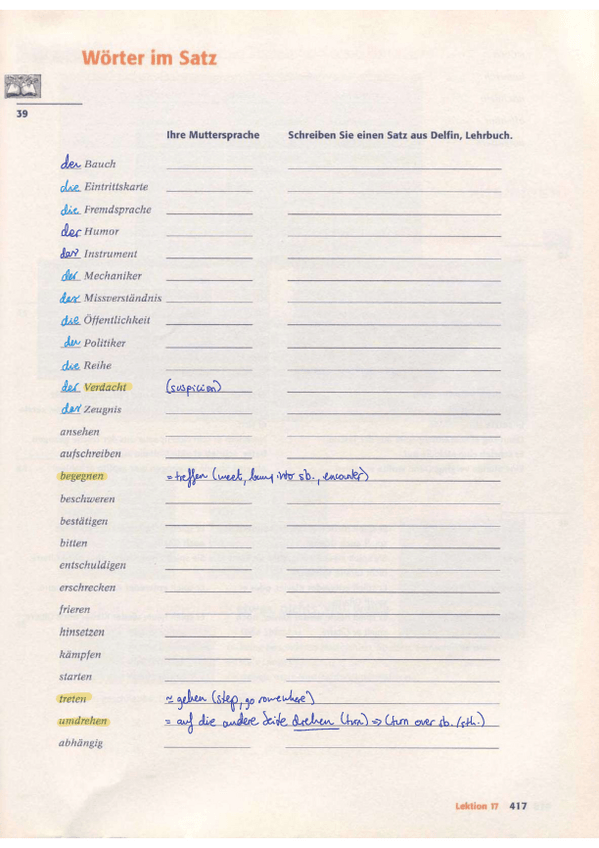 Wörter im Satz
39
Ihre Muttersprache Schreiben Sie einen Satz aus Delfin, Lehrbuch.
der Bauch
die Eintrittskarte
die Fremdsprache
der Humor
das Instrument
der Mechaniker
das Missverständnis
die Öffentlichkeit
der Politiker
die Reihe
der Verdacht (suspicion)
das Zeugnis
ansehen
aufschreiben
begegnen = treffen (meet, bump into sb., encounter)
beschweren
bestätigen
bitten
entschuldigen
erschrecken
frieren
hinsetzen
kämpfen
starten
treten ≈ gehen (step, go somewhere)
umdrehen = auf die andere Seite drehen (turn) => (turn over sb./sth.)
abhängig
Lektion 17 417